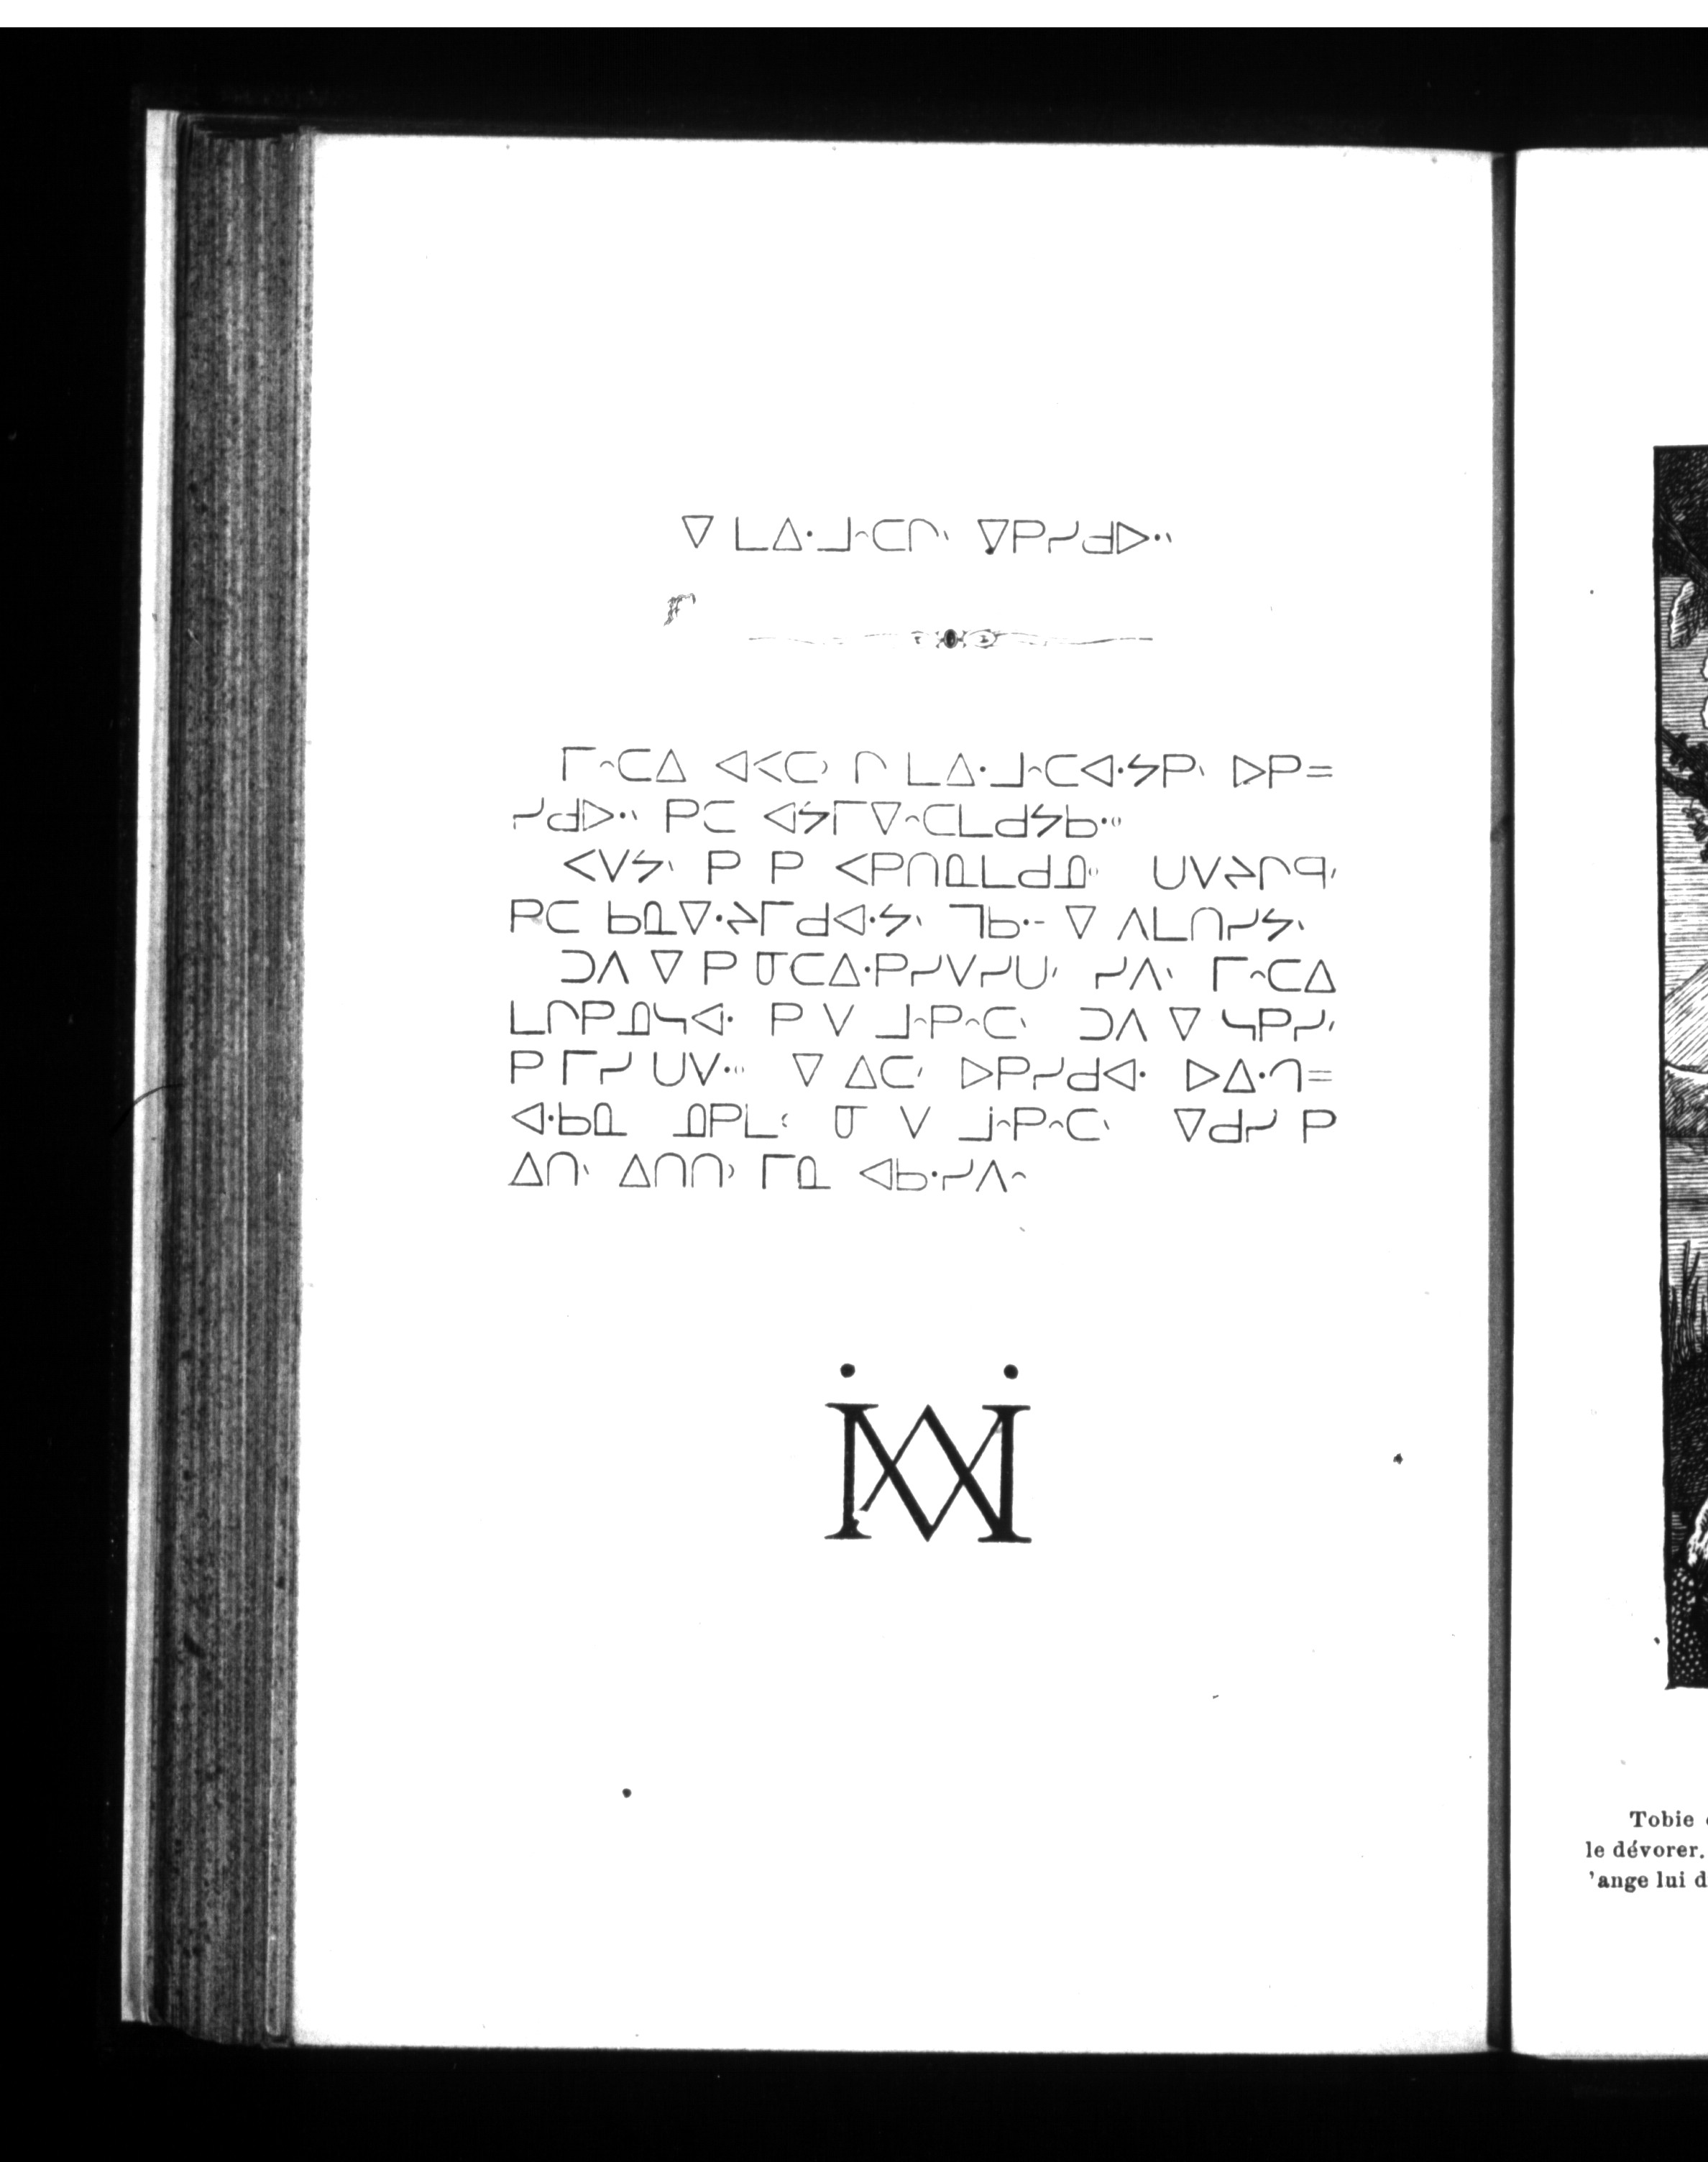 ᐁ ᒪᐃᐧᒧᐢᑕᒋᐠ ᐁᑭᓯᑯᐅᐧᐠ
ᒥᐢᑕᐃ ᐊᐸᑕᐣ ᒋ ᒪᐃᐧᒧᐢᑕᐊᐧᔭᑭᐠ ᐅᑭ=
ᓯᑯᐅᐧᐠ ᑭᑕ ᐊᔭᒥᐁᐢᑕᒪᑯᔭᑲᐧᐤ
ᐸᐯᔭᐠ ᑭ ᑭ ᐸᑭᑎᓇᒪᑯᓇᐤ ᑌᐯᔨᒋᑫᐟ
ᑭᑕ ᑲᓇᐁᐧᔨᒥᑯᐊᐧᔭᐠ ᒣᑲᐧ- ᐁ ᐱᒪᑎᓯᔭᐠ
ᑐᐱ ᐁ ᑭ ᓀᑕᐃᐧᑭᓯᐯᓯᑌᐟ ᓯᐱᐠ ᒥᐢᑕᐃ
ᒪᒋᑭᓄᓴᐊᐧ ᑭ ᐯ ᒧᐢᑭᐢᑕᐠ ᑐᐱ ᐁ ᓴᑭᓯᐟ
ᑭ ᒥᓯ ᑌᐯᐧᐤ ᐁ ᐃᑕᐟ ᐅᑭᓯᑯᐊᐧ ᐅᐃᐧᒉ=
ᐊᐧᑲᓇ ᓄᑭᒪᑊ ᓀ ᐯ ᒧᐢᑭᐢᑕᐠ ᐁᑯᓯ ᑭ
ᐃᑎᐠ ᐃᑎᑎᐣ ᒥᓇ ᐊᑲᐧᓯᐱᐢ
Tobie
le dévorer.
'ange lui d